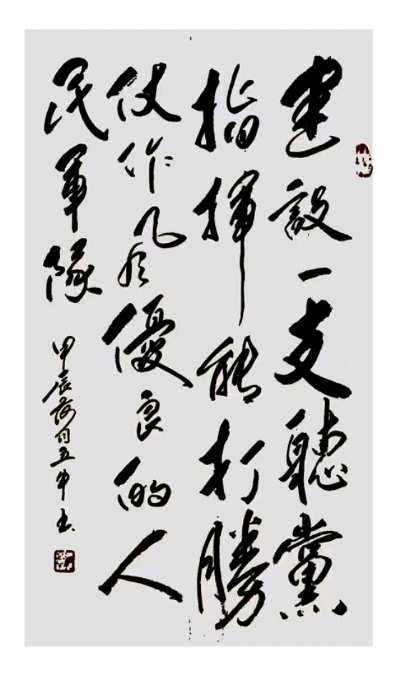 建設一支聽黨
指揮能打勝
仗作風優良的人
民軍隊
甲辰荷月五牛书